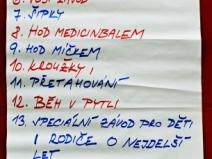 6. PSÍ ZÁVOD
7. ŠIPKY
8. HOD MEDICINBALEM
9. HOD MÍČKEM
10. KROUŽKY
11. PŘETAHOVÁNÍ
12. BĚH V PYTLI
13. SPECIÁLNÍ ZÁVOD PRO DĚTI
I RODIČE O NEJDELŠÍ
LET